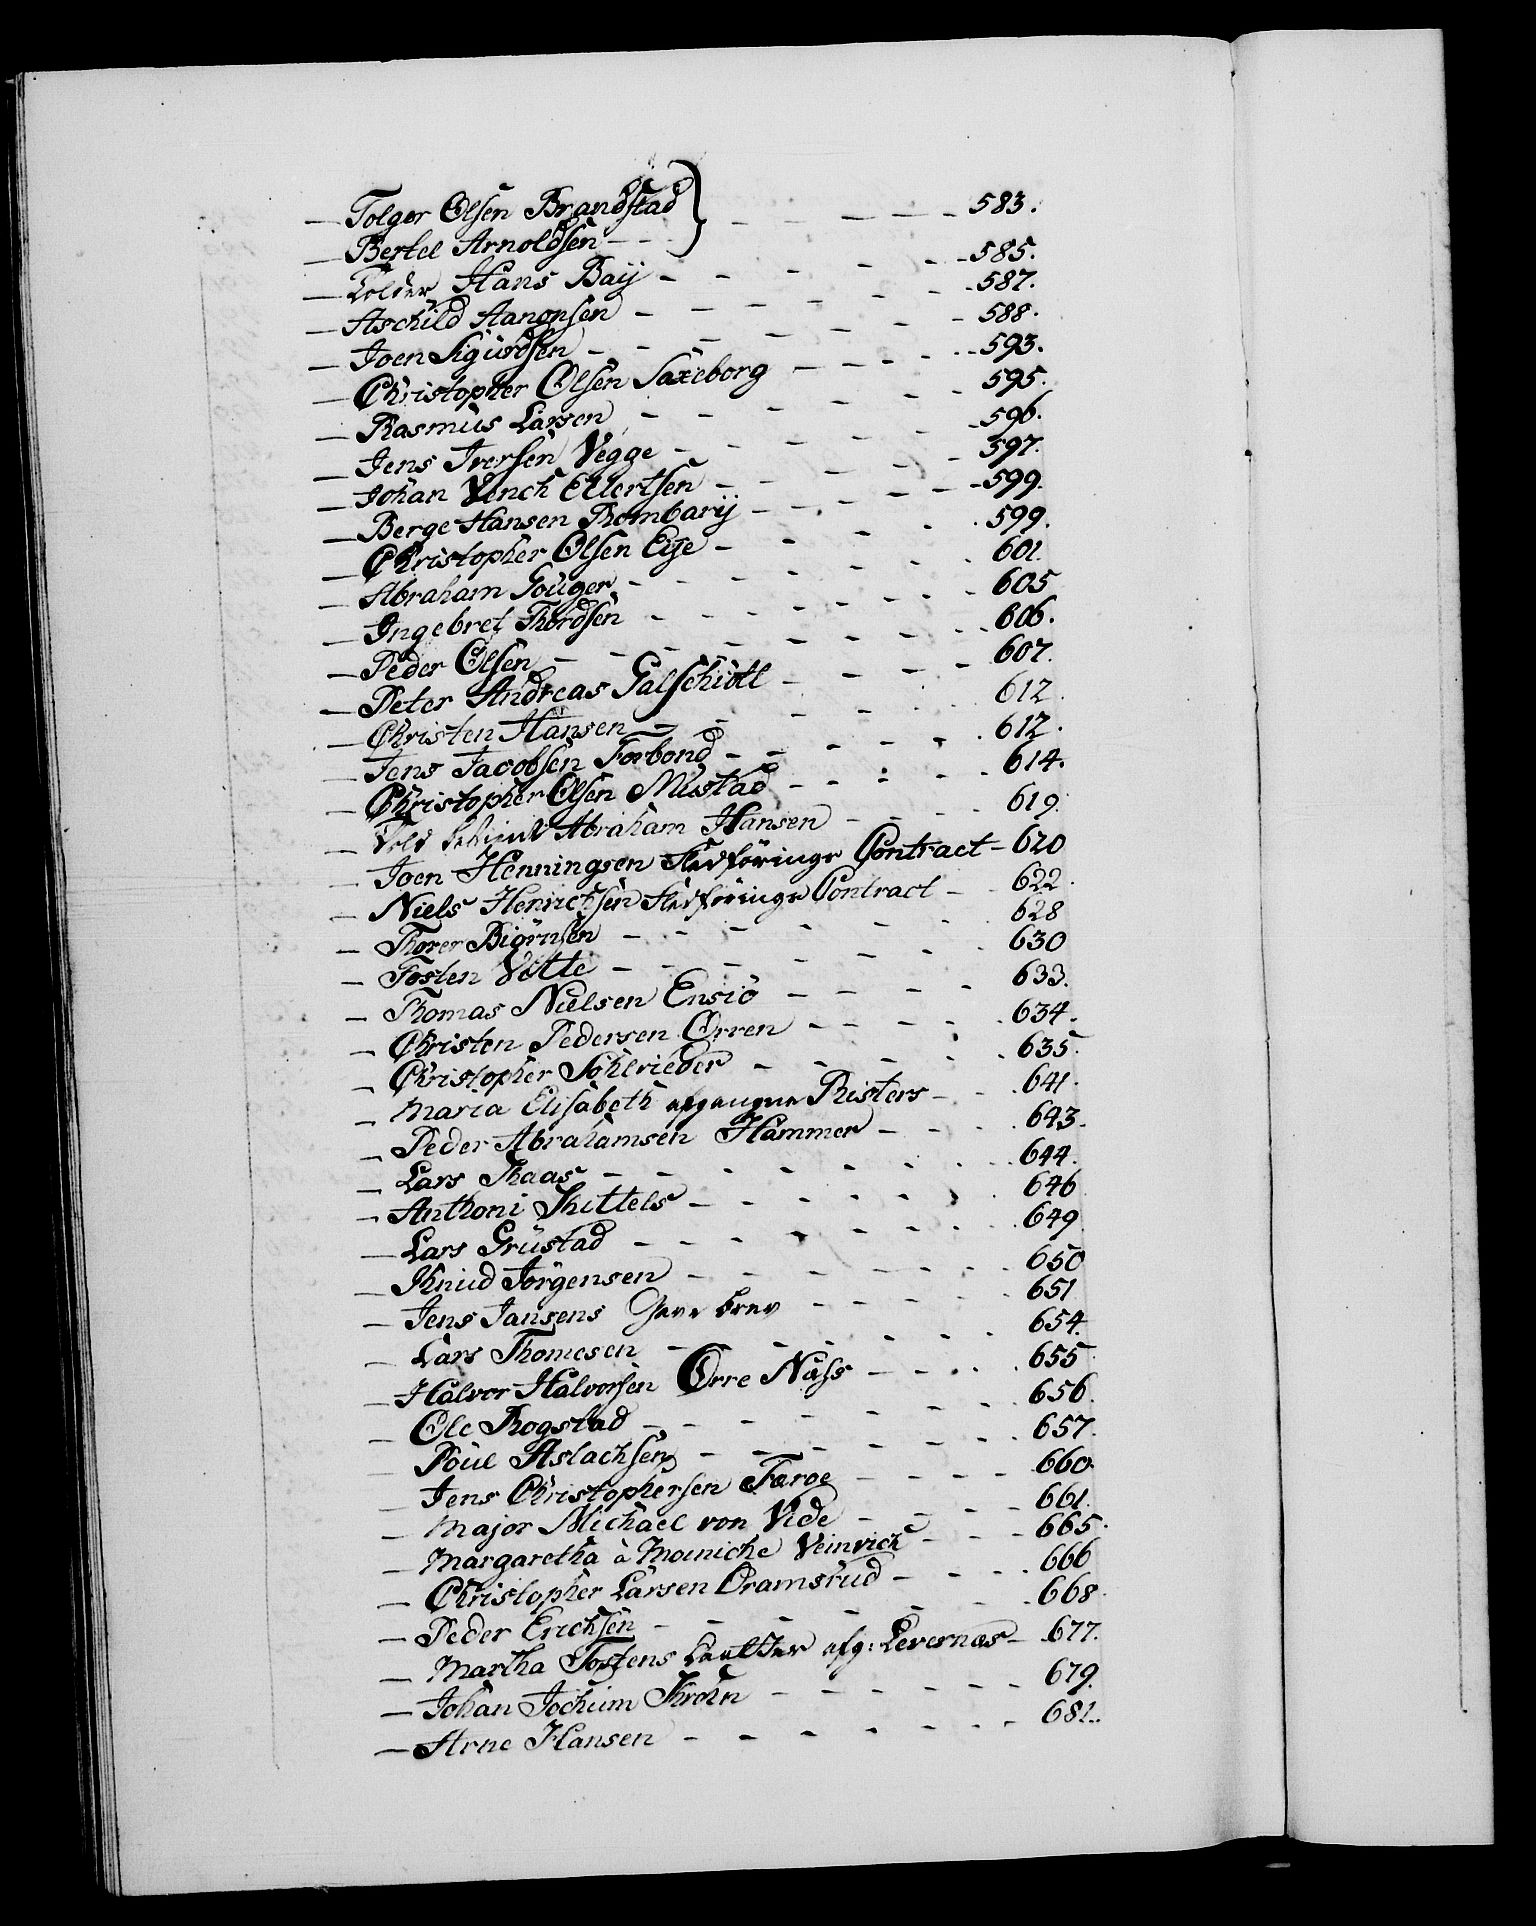 — Tolger Olsen Brandstad } - - - - 583.
— Bertel Arnoldsen - - -
— Tolder Hans Baÿ - - - - - 585.
— Aschild Aanonsen - - - - - 587.
— Joen Sigurdsen - - - - - 588.
— Christopher Olsen Saxeborg - - - - 593.
— Rasmus Larsen - - - - - 595.
— Jens Iversen Vegge - - - - - 596.
— Johan Vench Ellertsen - - - - 597.
— Berge Hansen Rombarÿ - - - - 599.
— Christopher Olsen Eÿe - - - - 599.
— Abraham Gouger - - - - - 601.
— Ingebret Thordsen - - - - - 605
— Peder Olsen - - - - - 606.
— Peter Andreas Galschiøtt - - - - 607.
— Christen Hansen - - - - - 612.
— Jens Jacobsen Forbond - - - - 612.
— Christopher Olsen Mustad - - - - 614.
— Abraham Hansen - - - - 619.
— Joen Henningsen Fledførings Contract - 620
— Niels Henrichsen Fledførings Contract - 622.
— Thorer Biørnsen - - - - - 628
— Tosten Vette - - - - - 630
— Thomas Nielsen Ensiø - - - - 633.
— Christen Pedersen Orren - - - - 634.
— Christopher Sohlrieder - - - - 635.
— Maria Elisabeth afgangne Risters - - 641.
— Peder Abrahamsen Hammer - - - 643.
— Lars Thaas - - - - - 644.
— Anthoni Kittels - - - - - 646
— Lars Grustad - - - - - 649
— Knud Jørgensen - - - - - 650
— Jens Jansens Gave brev - - - - 651
— Lars Thomesen - - - - - 654.
— Halvor Halvorsen Orre Næss - - - - 655
— Ole Rogstad - - - - - 656.
— Poul Aslachsen - - - - - 657.
— Jens Christophersen Faroe - - - - 660.
— Major Michael von Vide - - - - 661.
— Margaretha à Moiniché Veinrich - - - 665.
— Christopher Larsen Dramsrud - - - - 666
— Peder Erichsen - - - - - 668.
— Martha Tostens Daatter afg: Levernæs - 677.
— Johan Jochum Krohn - - - - - 679.
— Arne Hansen - - - - - 681.